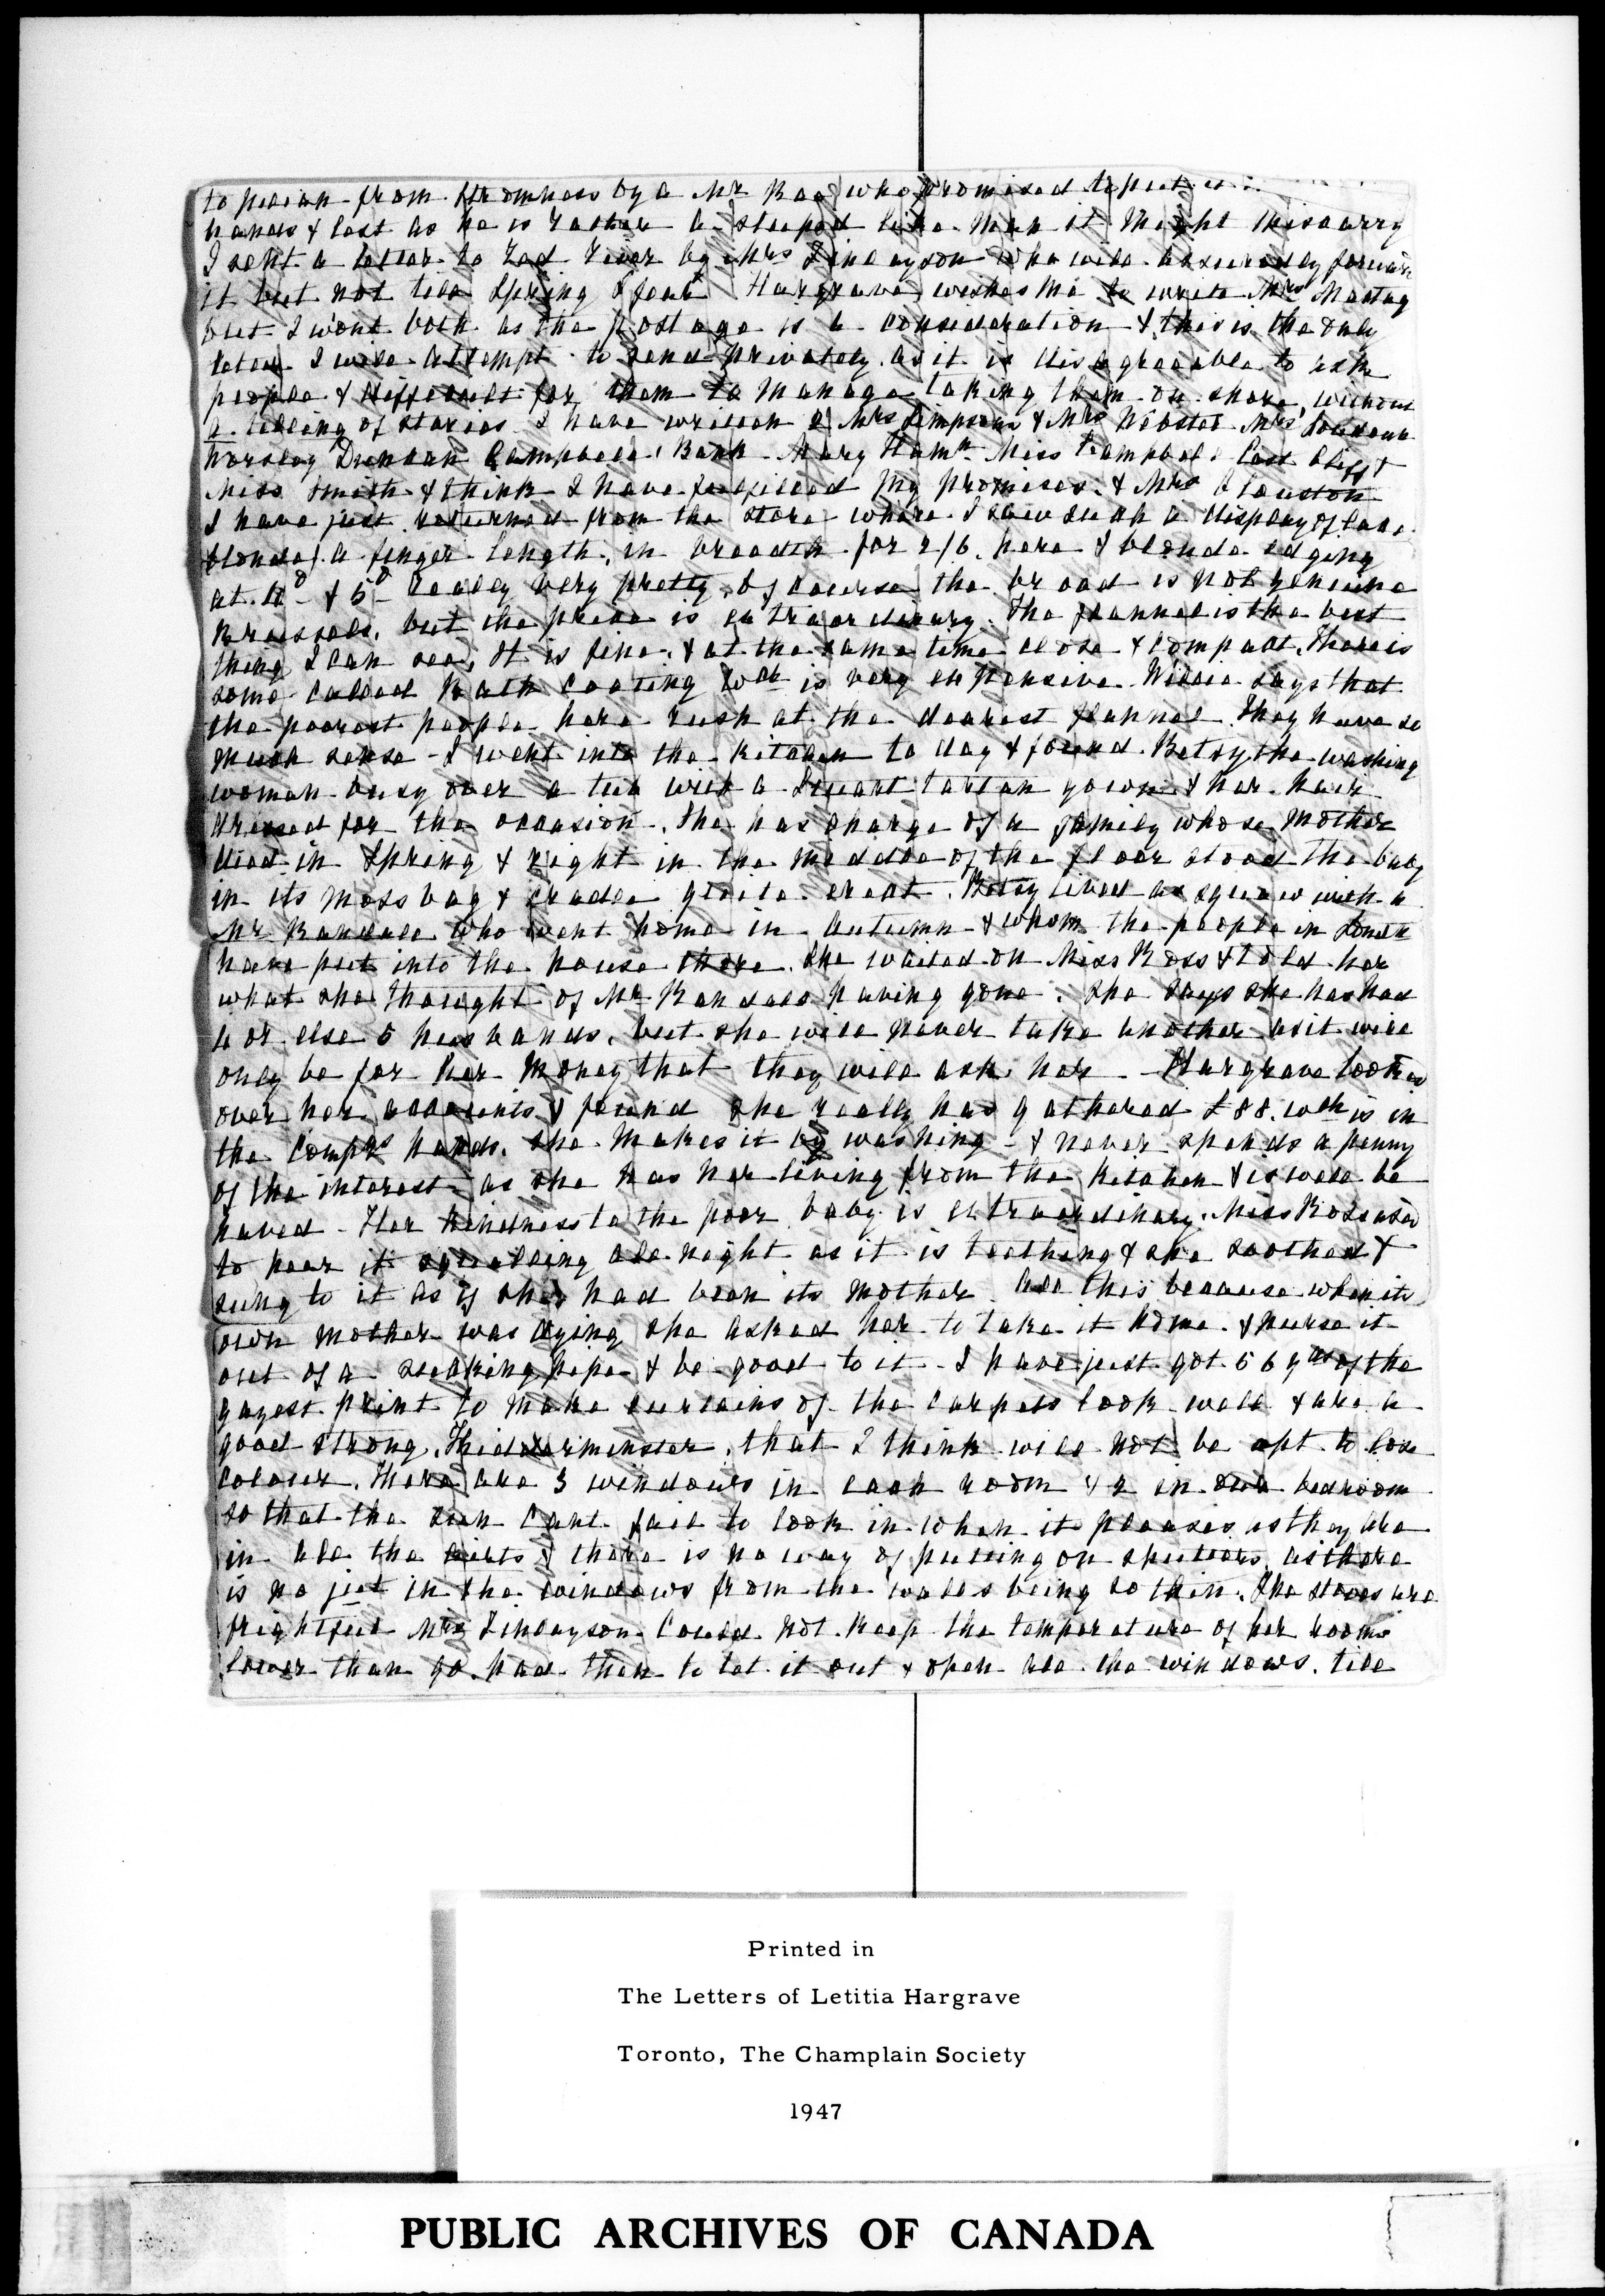 to from Stromness by a Mr Rae who promised to put it
hands & lest as he is rather a stupid like man it might miscarry
I sent a letter to Red River by Mrs Finlayson who will assuredly forward
it but not till Spring I fear Hargrave wishes me to write Mrs Mactag
but I wont both as the postage is a consideration & this is the only
letter I will attempt to send privately as it is disagreeable to ask
people & difficult for them to manage taking them on shore, without
a telling of stories I have written Mrs Simpson & Mrs Webster Mrs
Duncan Campbell, Bank Mary Hamn Miss Campbell East Cliff &
Miss Smith & think I have fulfilled my promises. & Mrs Clouston
I have just returned from the store where I saw such a display of lace
blonde a finger length, in breadth for 2/6. here & blonde edging
at 4D & 5D really very pretty, of course the broad is not genuine
Brussels, but the price is extraordinary. The flannel is the best
thing I can see, It is fine, & at the same time close & compact. There is
some called Bath Coating wch is very expensive. Willie says that
the poorest people here rush at the dearest flannel. They have so
much sense - I went into the kitchen to day & found Betsy the washing
woman busy over a tub with a Stuart tartan gown & her hair
dressed for the occasion. She has charge of a family whose mother
died in Spring & right in the middle of the floor stood the baby
in its moss bag & cradle quite erect. Betsy lived as squaw with a
Mr Randall who went home in Autumn & whom the people in
have put into the house there. She waited on Miss Ross & told her
what she thought of Mr Randall having gone. She says she has had
4 or else 5 husbands, but she will never take another as it will
only be for her money that they will ask her - Hargrave looked
over her accounts & found she really has gathered £88. wch is in
the Compys hands. She makes it by washing - & never spends a penny
of the interest as she has her living from the kitchen & is well be
haved - Her kindness to the poor baby is extraordinary. Miss Ross used
to hear it squalling all night as it is teething & she soothed &
sung to it as if she had been its mother All this because when its
own mother was dying she asked her to take it home & nurse it
out of a sucking pipe & be good to it - I have just got 56 yds of the
gayest print to make curtains of the carpets look well & are a
good strong Kidderminster, that I think will not be apt to lose
colour. There are 3 windows in each room & 2 in our bedroom
so that the sun cant fail to look in when it pleases as they are
in all the & there is no way of putting on shutters, as there
is no jut in the windows from the walls being so thin. The stoves are
frightful Mrs Finlayson could not keep the temperature of her rooms
lower than 90. had then to let it out & open all the windows, till
Printed in
The Letters of Letitia Hargrave
Toronto, The Champlain Society
1947
PUBLIC ARCHIVES OF CANADA